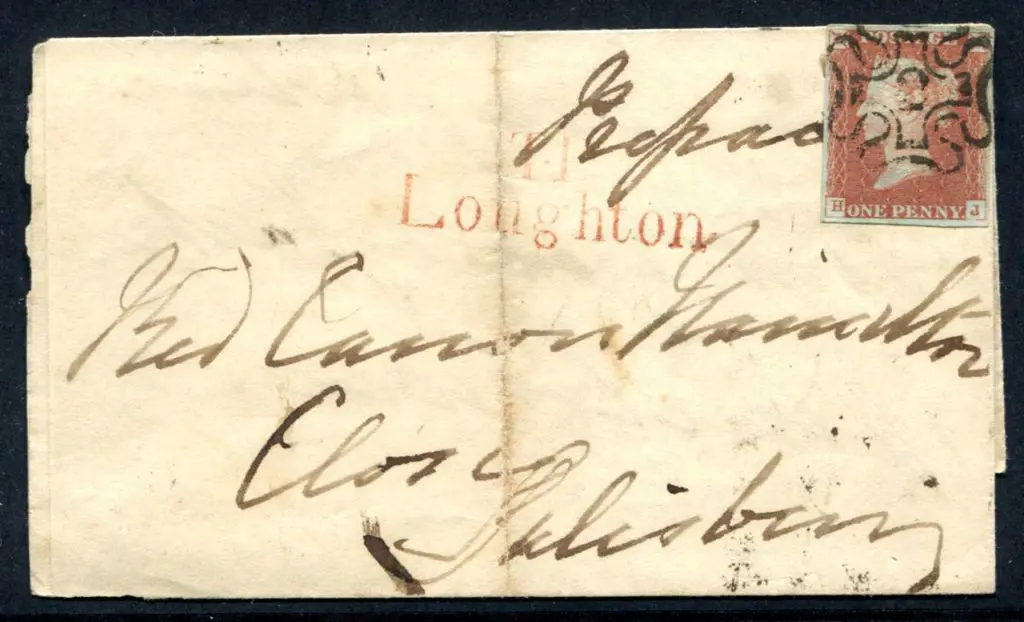 Prepaid
POSTAGE
T.P
Loughton
H ONE PENNY J
Revd Canon Hamilton
Close
Salisbury